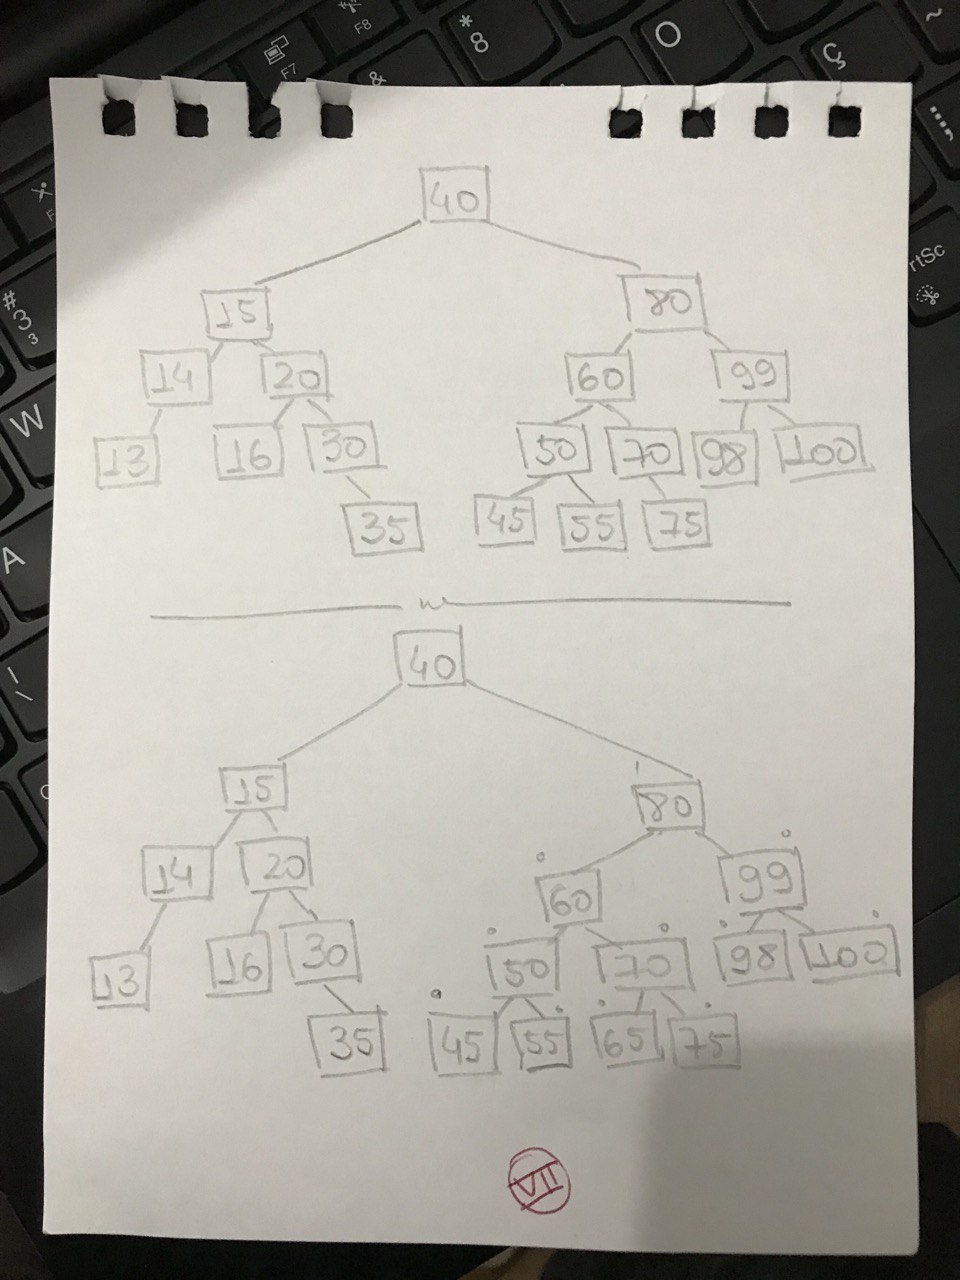 F8
* 8
O
Ç
~
F7
&
rtSc
# 3 3
W
A
| \
40
15 80
14 20 60 99
13 16 30 50 70 98 100
35 45 55 75
40
15 80
14 20 60 99
13 16 30 50 70 98 100
35 45 55 65 75
VII